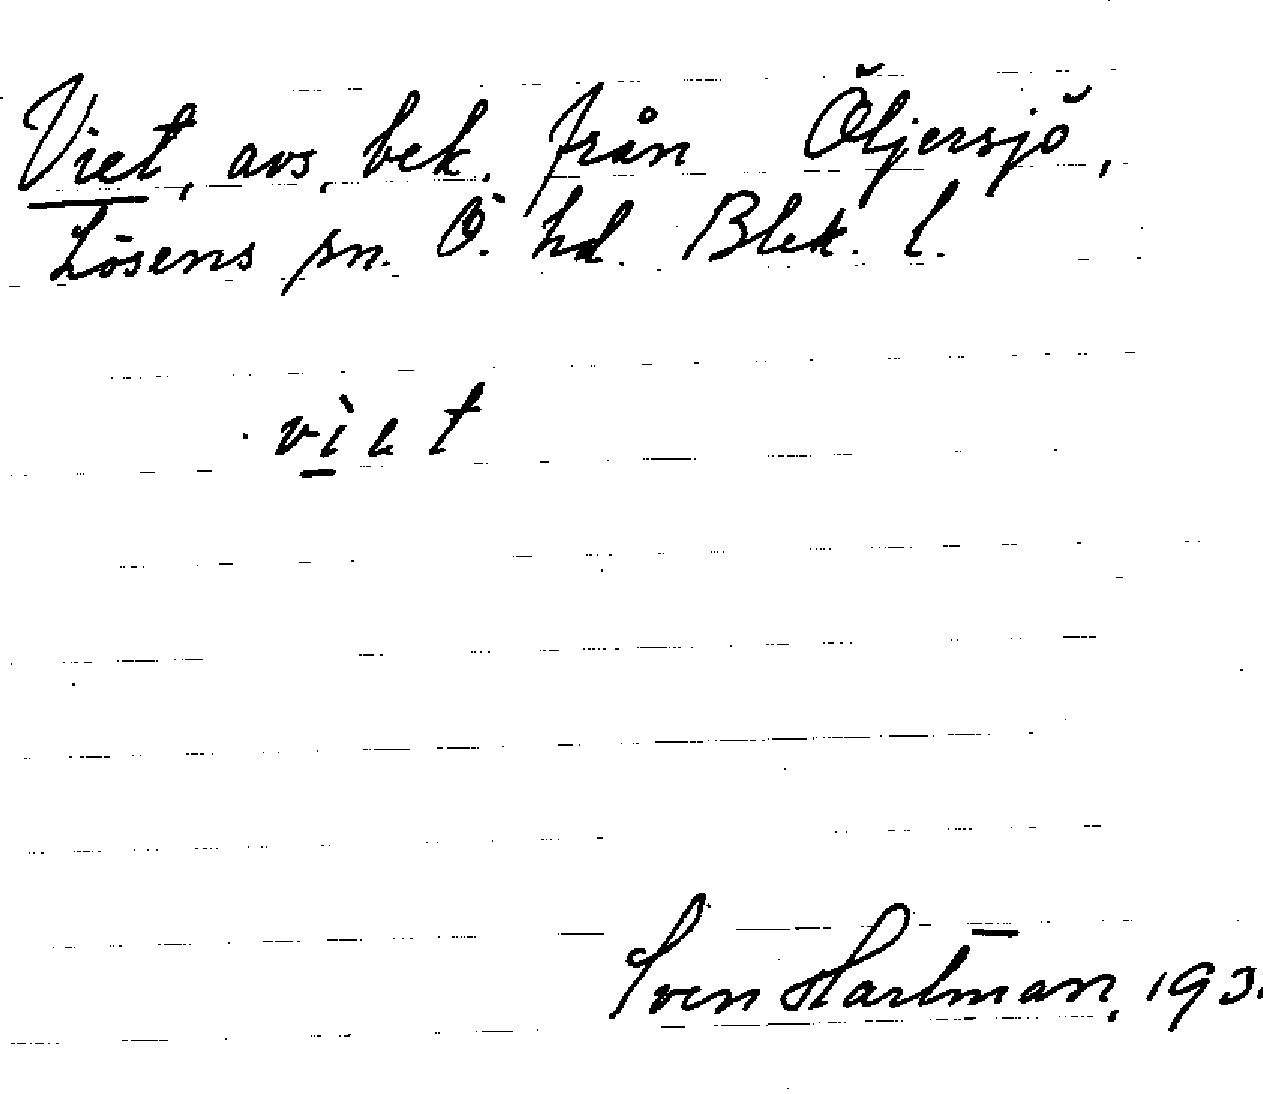 Viet, avs. bek. från Öljersjö,
Lösens sn. Ö. hd. Blek. l.
Sven Hartman, 193